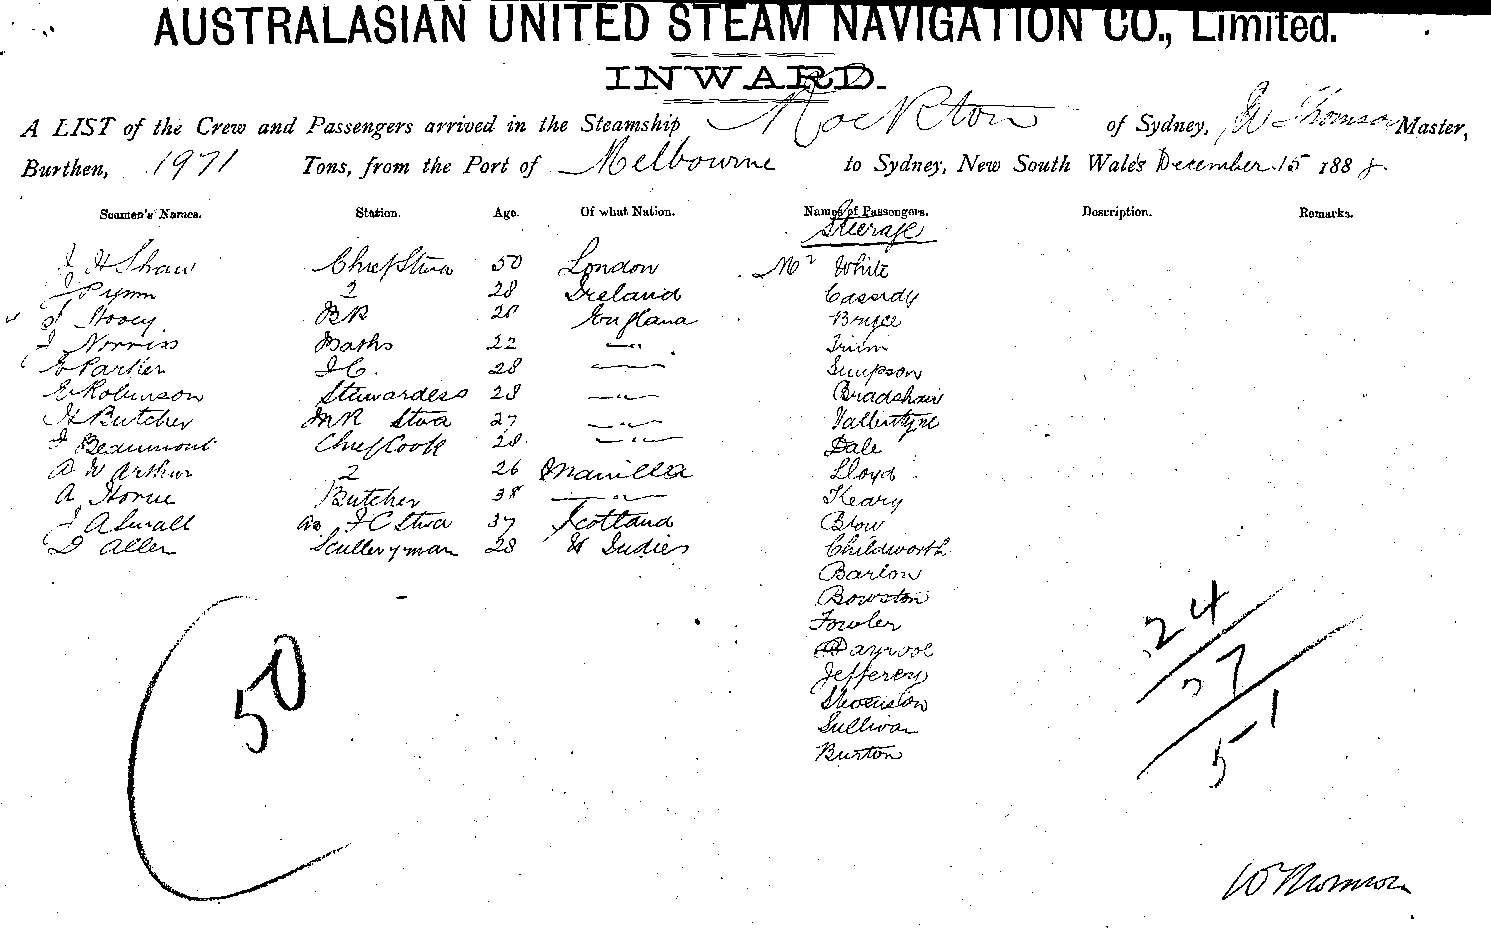 AUSTRALASIAN UNITED STEAM NAVIGATION CO., Limited.
INWARD.
A LIST of the Crew and Passengers arrived in the Steamship RockTon of Sydney, W Thomson Master,
Burthen, 1971 Tons, from the Port of Melbourne to Sydney, New South Wales December 15 1888.
Seamen's Names. Station. Age. Of what Nation. Names of Passengers. Description. Remarks.
Steerage
J H Shaw Chief Stwd 50 London Mr White
J Pymm 2 28 Ireland Cassidy
J Hovey BR 28 England Bruce
J Norriss Baths 22 —"— Trim
E Parker F.C. 28 —"— Simpson
E Robinson Stewardess 28 —"— Bradshaw
H Butcher Stwd 27 —"— Vallentyne
J Beaumont Chief Cook 28 —"— Dale
A W Arthur 2 26 Manilla Lloyd
A Horne Butcher 38 —"— Keary
J A Small as F C Stwd 37 Scotland Blow
D Allen Sculleryman 28 W Indies Childworth
Barlow
Bowston
Fowler
Jefferey
Stevenson
Sullivan
Burton
50
24
27
51
W Thomson